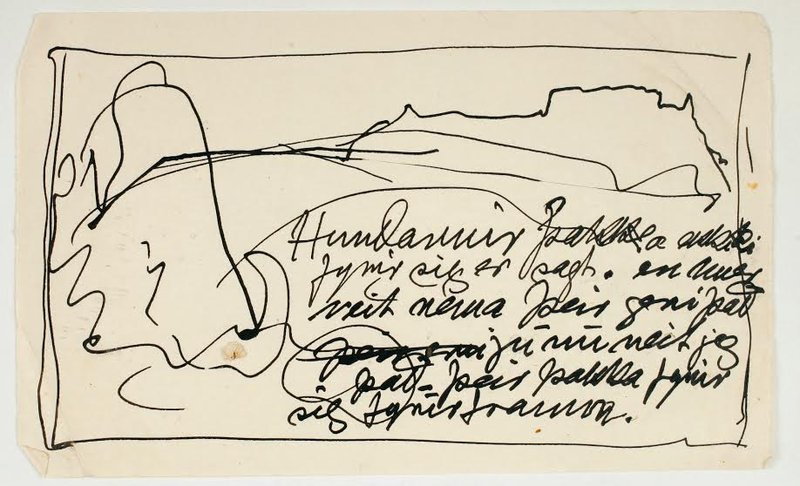 Hundarnir þakka ekki
fyrir sig er sagt. en hver
veit nema þeir geri það
jú nú veit jeg
það - þeir þakka fyrir
sig fyrirfram.